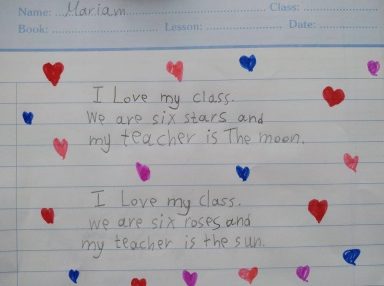 Name: Mariam Class:
Book: Lesson: Date:
I Love my class.
We are six stars and
my teacher is The moon.
I Love my class.
we are six roses and
my teacher is the sun.